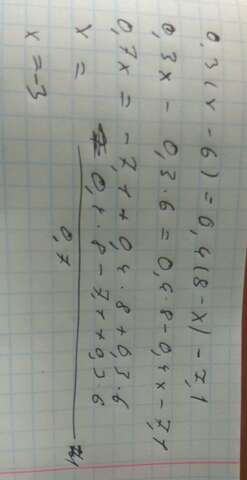 0,3(x - 6) = 0,4(8 - x) - 7,1
0,3x - 0,3·6 = 0,4·8 - 0,4x - 7,1
0,7x = -7,1 + 0,4·8 + 0,3·6
x = 0,4·8 - 7,1 + 0,3·6
0,7
x = -3